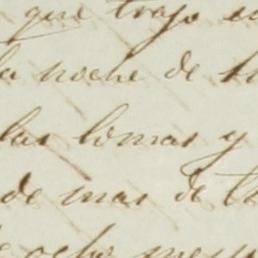 que trajo
la noche de
las lomas y
de mas de
ocho